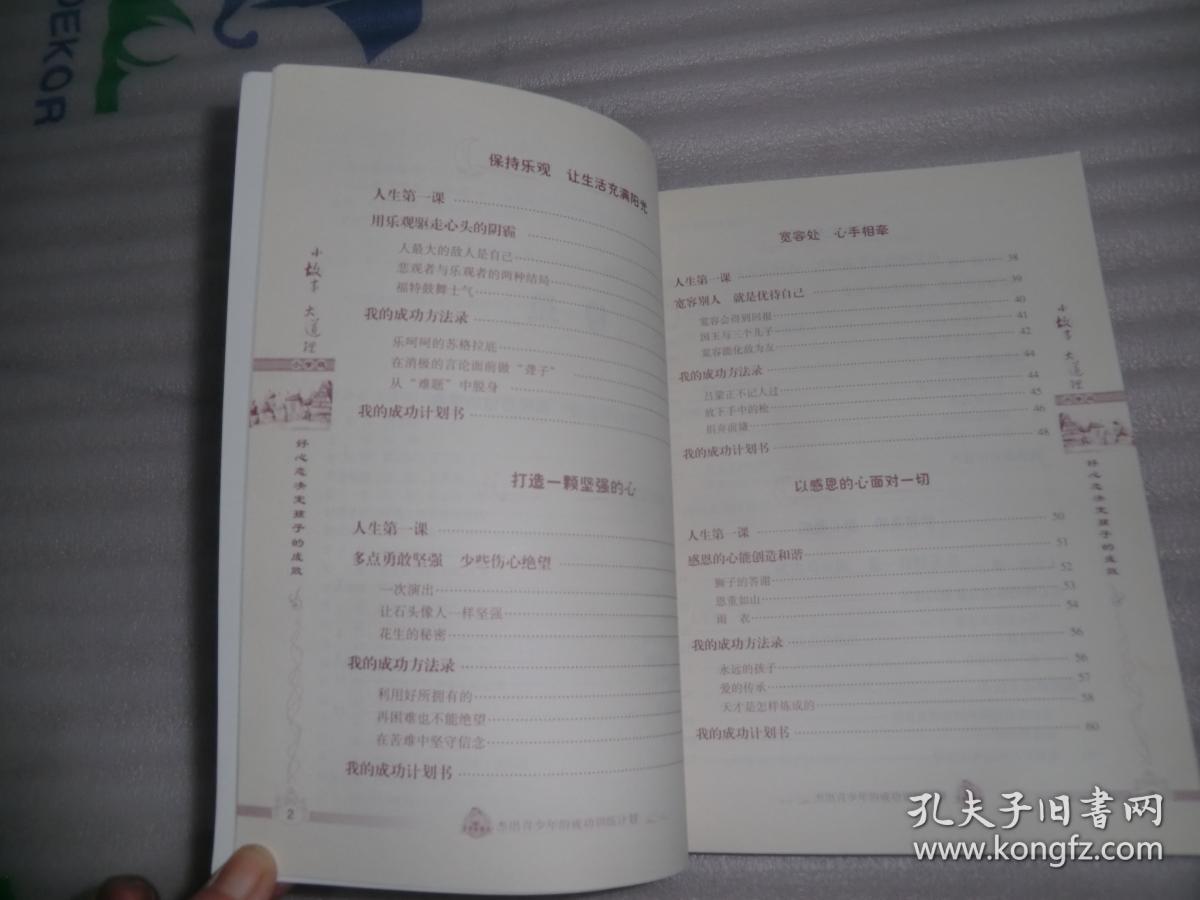 DEKOR
保持乐观 让生活充满阳光
人生第一课
用乐观驱走心头的阴霾
人最大的敌人是自己
悲观者与乐观者的两种结局
福特鼓舞士气
我的成功方法录
乐呵呵的苏格拉底
在消极的言论面前做“聋子”
从“难题”中脱身
我的成功计划书
打造一颗坚强的心
人生第一课
多点勇敢坚强 少些伤心绝望
一次演出
让石头像人一样坚强
花生的秘密
我的成功方法录
利用好所拥有的
再困难也不能绝望
在苦难中坚守信念
我的成功计划书
小故事 大道理
好心态决定孩子的成败
2
杰出青少年的成功训练计划
宽容处 心手相牵
人生第一课 38
宽容别人 就是优待自己 39
宽容会得到回报 40
国王与三个儿子 41
宽容能化敌为友 42
我的成功方法录 44
吕蒙正不记人过 44
放下手中的枪 45
捐弃前嫌 46
我的成功计划书 48
以感恩的心面对一切
人生第一课 50
感恩的心能创造和谐 51
狮子的答谢 52
恩重如山 53
雨 衣 54
我的成功方法录 56
永远的孩子 56
爱的传承 57
天才是怎样炼成的 58
我的成功计划书 60
小故事 大道理
好心态决定孩子的成败
杰出青少年的成功训
孔夫子旧书网
www.kongfz.com